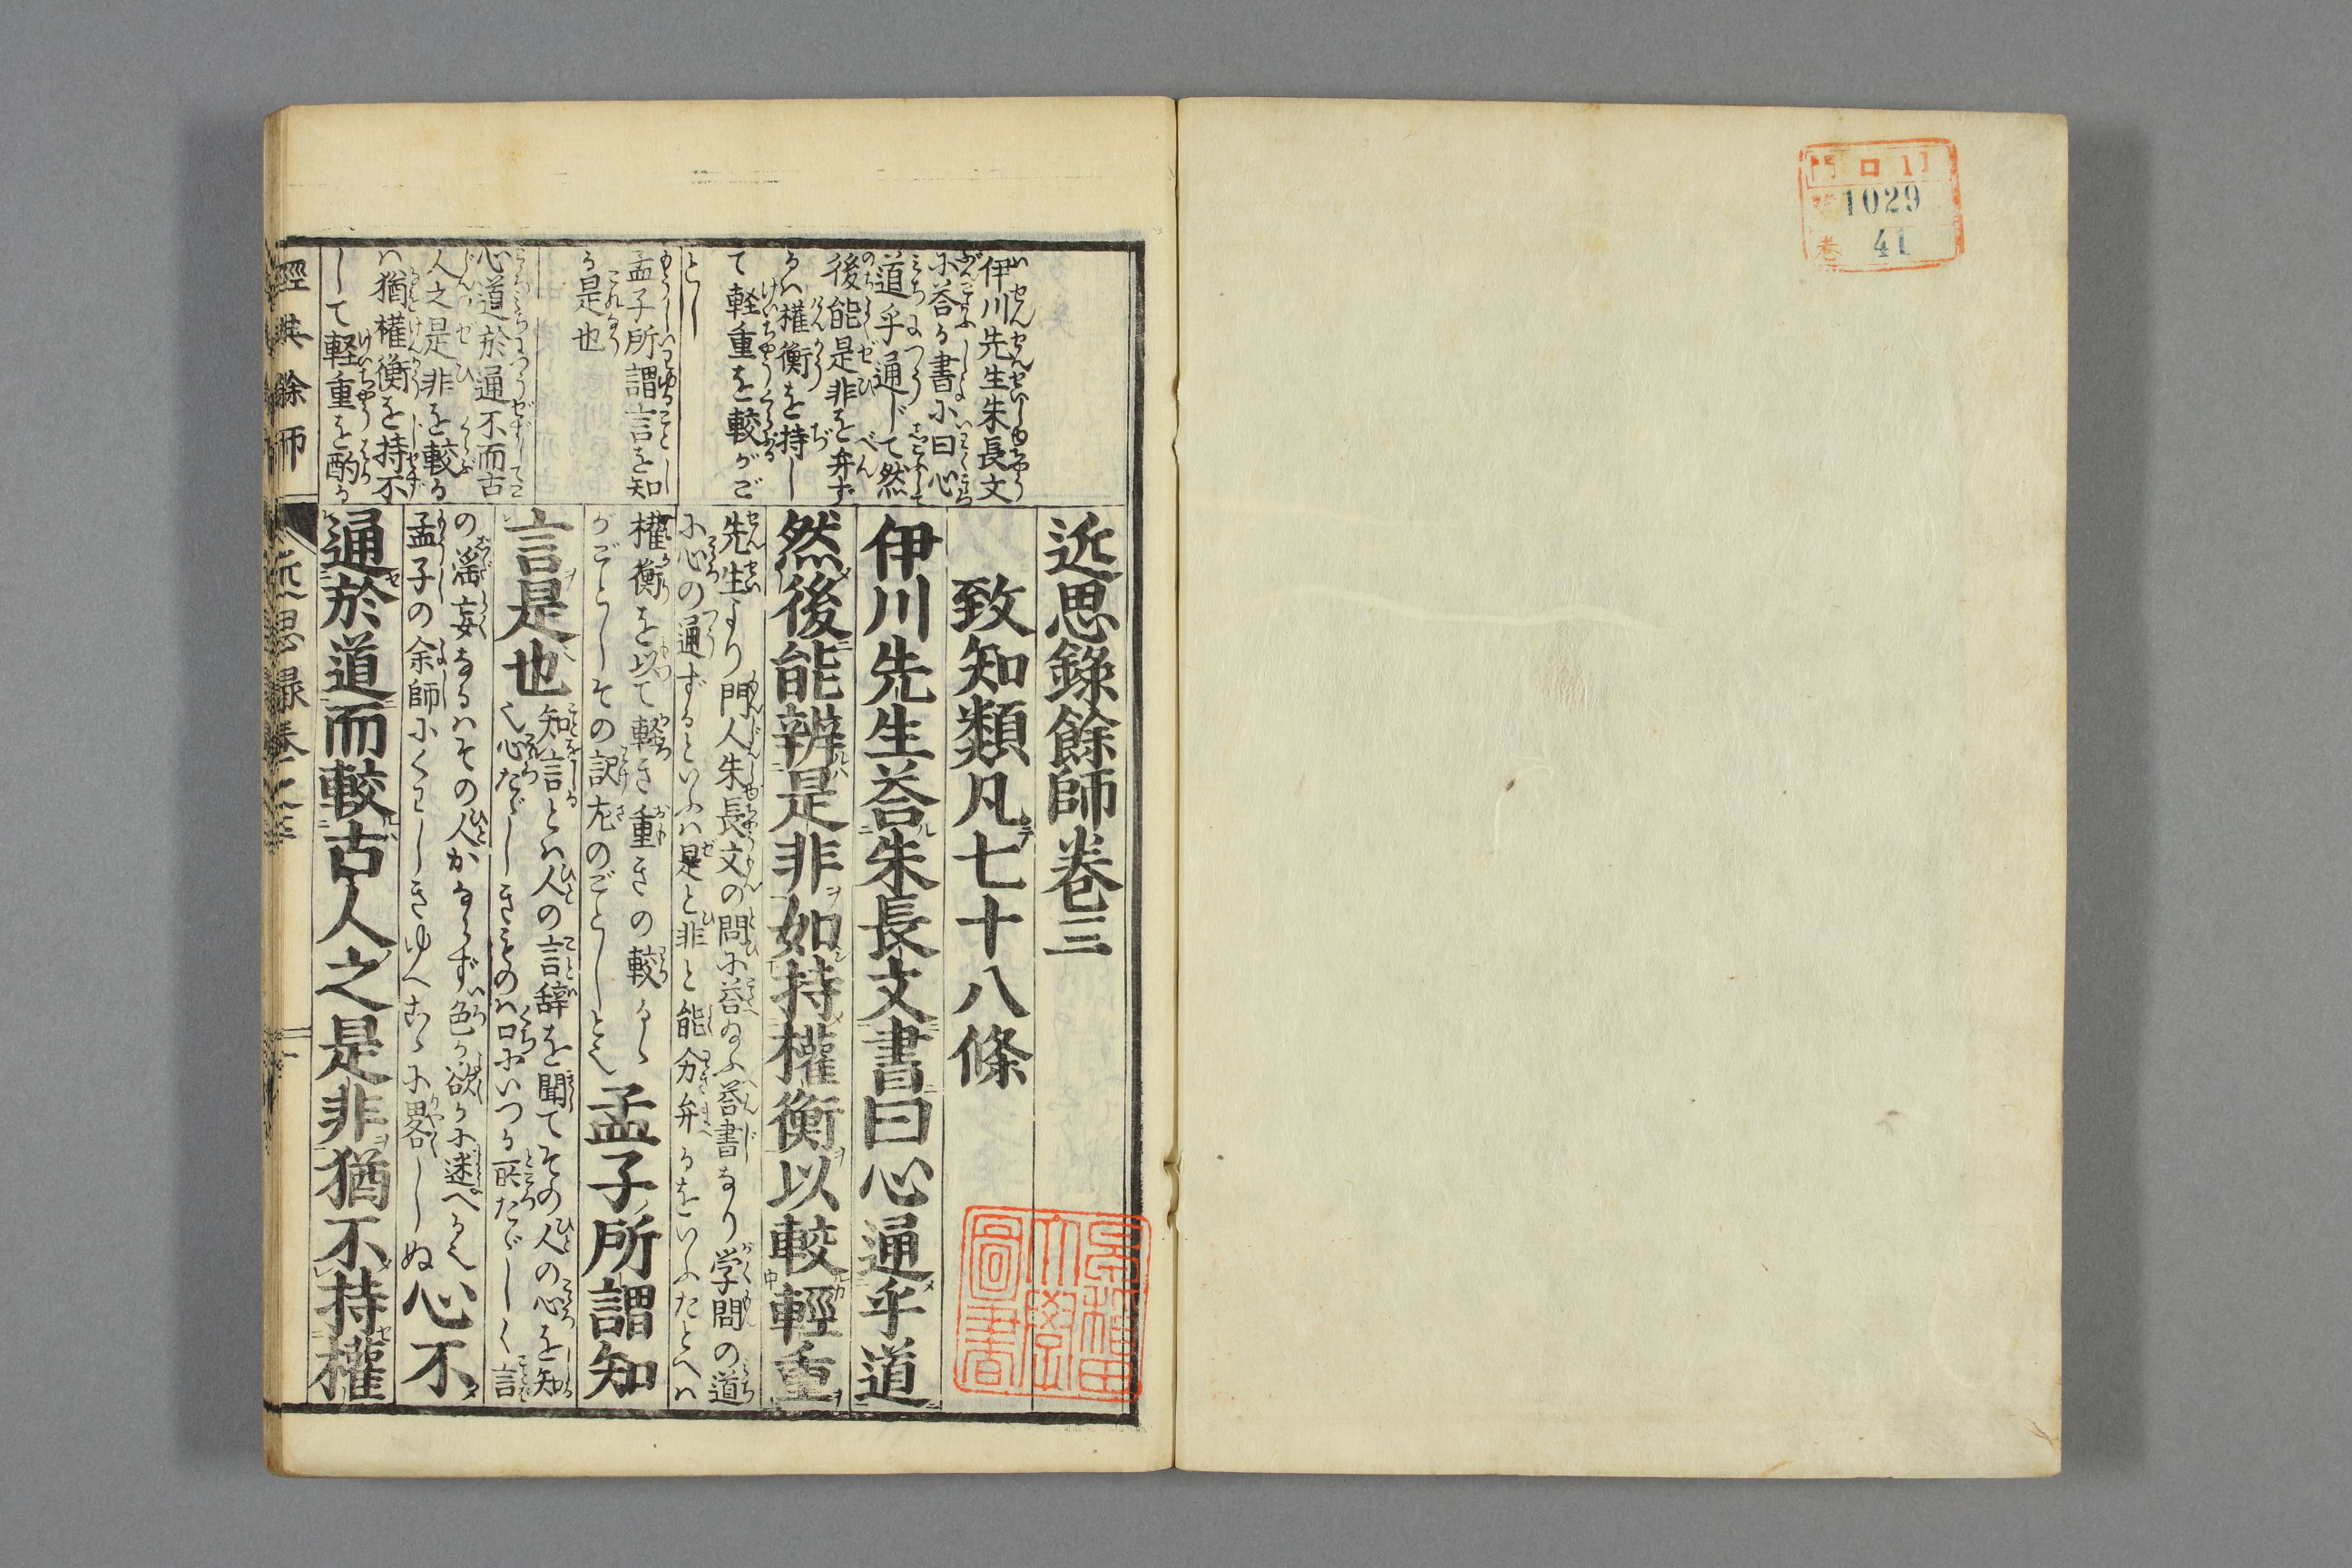 門 ロ 11
號 1029
卷 41
伊川先生朱長文
に荅る書に曰心
道乎通じて然
後能是非を弁ず
るハ權衡を持し
て軽重を較がご
とし
孟子所謂言を知
る是也
心道於通不而古
人之是非を較る
ハ猶權衡を持不
して軽重を酌る
近思錄餘師卷三
致知類凡七十八條
伊川先生荅朱長文書曰心通乎道
然後能辨是非如持權衡以較輕重
先生より門人朱長文の問に荅ゐふ荅書なり学問の道
に心の通ずるといふハ是と非と能分弁るをいふたとへハ
權衡を以て軽き重きの較るゝ
がごとしその訳左のごとしと也
孟子所謂知
言是也
知言とハ人の言辞を聞てその人の心を知
也心たゞしきものハ口にいつる所たゞしく言
の滛妄なるハその人かならず色か欲かに迷へる也
孟子の余師にくハしきゆへこゝに畧しぬ
心不
通於道而較古人之是非猶不持權
經典餘師
近思録卷之三
一
早稲田
大學
圖書